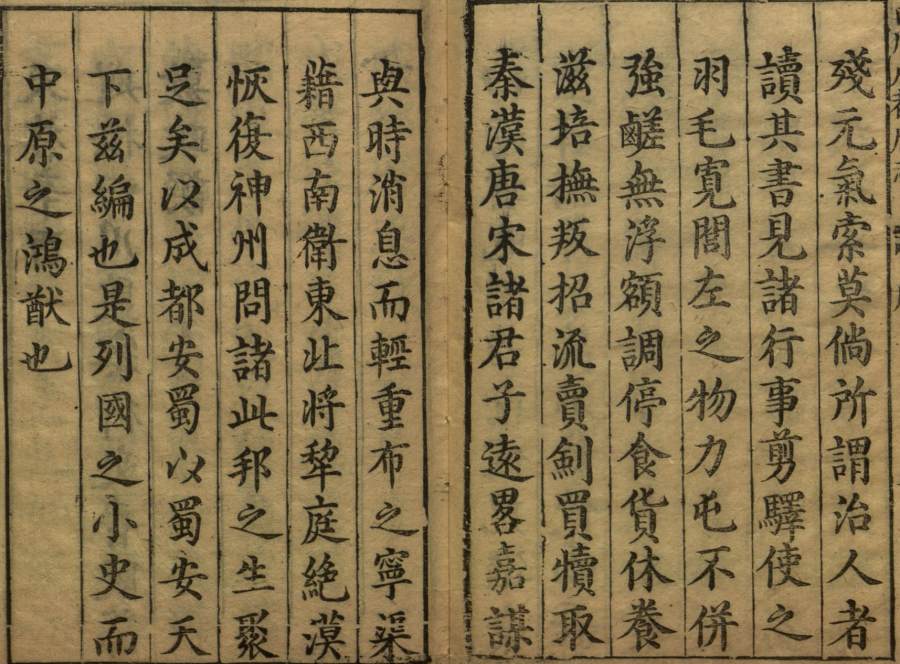 殘元氣索莫倘所謂治人者
讀其書見諸行事剪驛使之
羽毛寛閭左之物力屯不併
強鹺無浮額調停食貨休養
滋培撫叛招流賣劍買犢取
秦漢唐宋諸君子遠畧嘉謀
與時消息而輕重布之寧渠
藉西南衛東北將犂庭絶漠
恢復神州問諸此邦之生聚
足矣以成都安蜀以蜀安天
下茲編也是列國之小史而
中原之鴻猷也